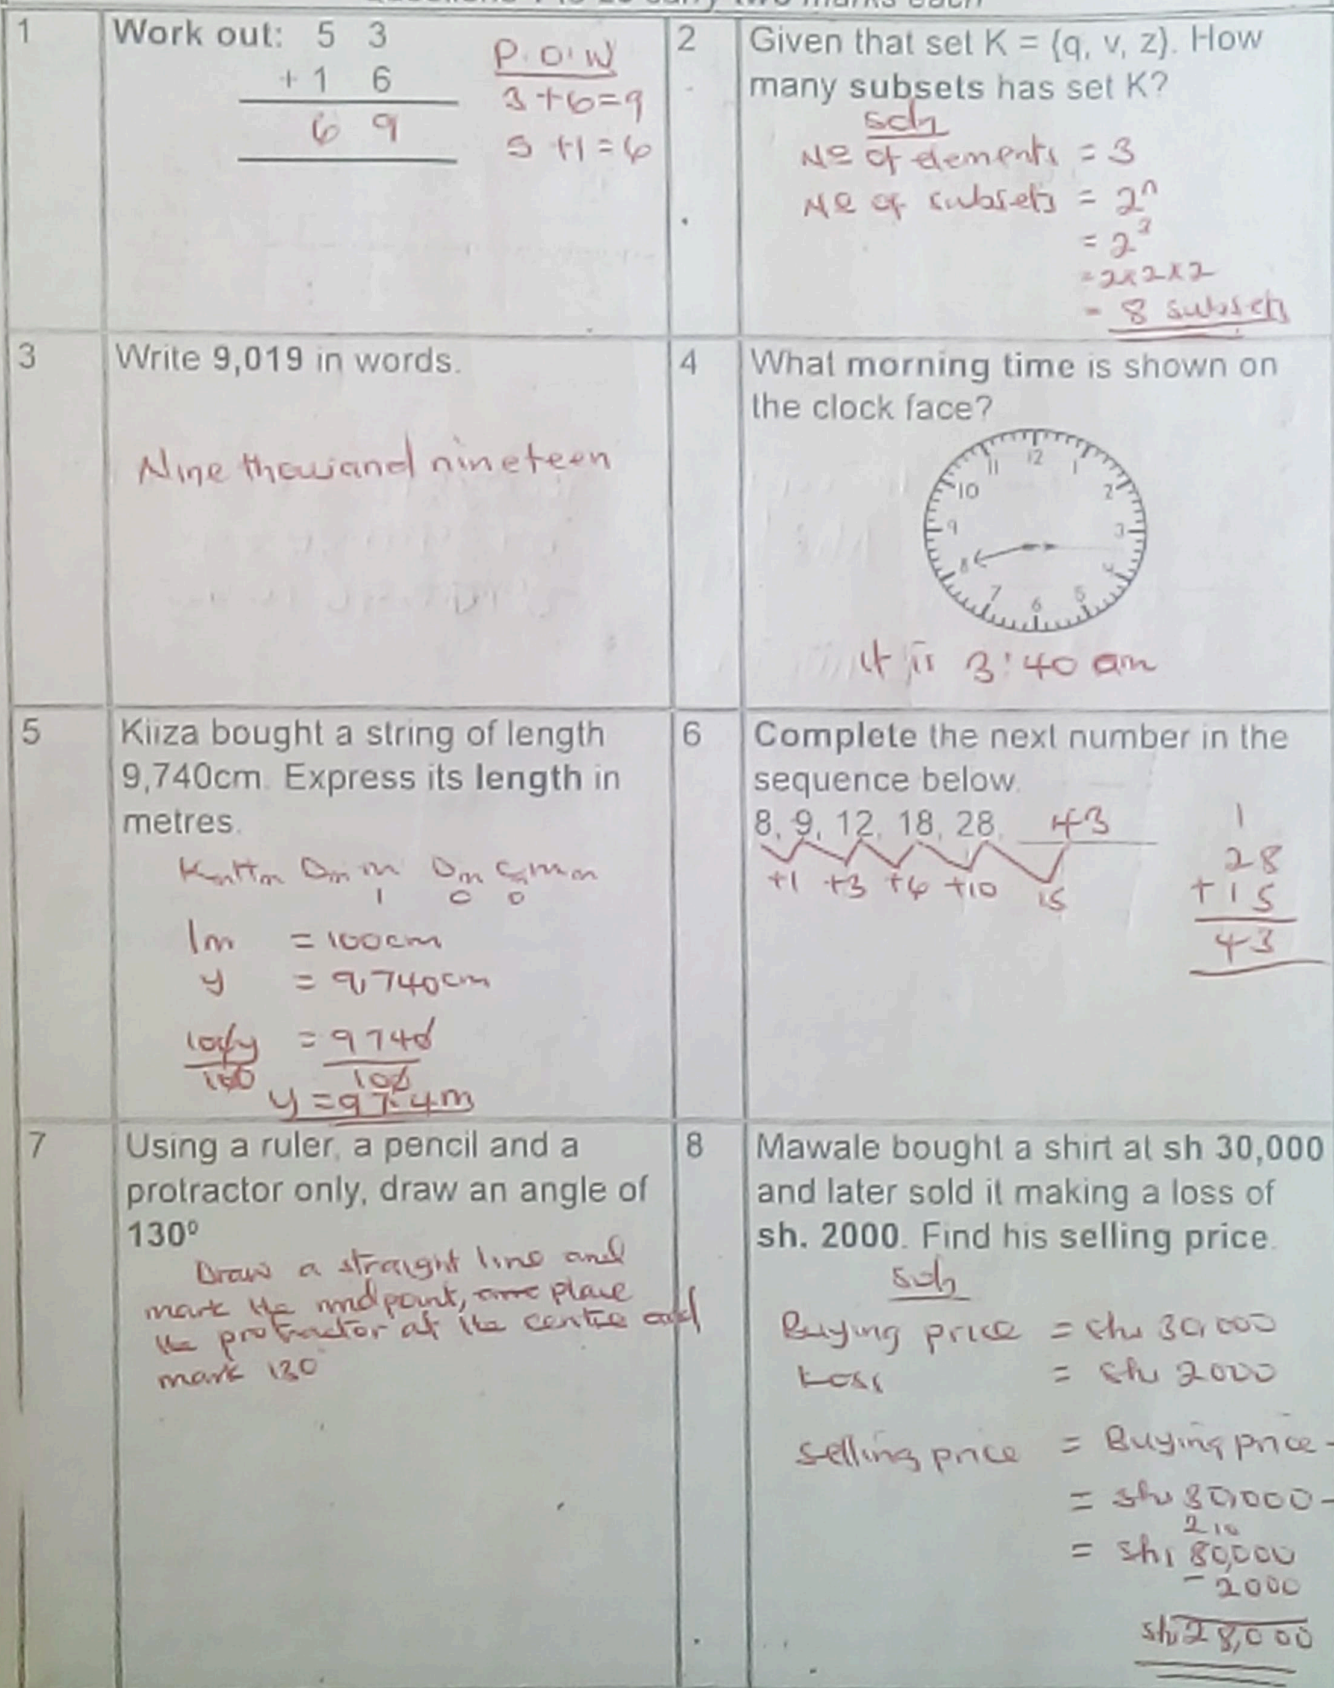 1
Work out: 5 3
+ 1 6
6 9
P.O.W
3+6=9
5+1=6
2
Given that set K = {q, v, z}. How
many subsets has set K?
Soln
No of elements = 3
No of subsets = 2ⁿ
= 2³
= 2x2x2
= 8 subsets
3
Write 9,019 in words.
Nine thousand nineteen
4
What morning time is shown on
the clock face?
12
11 1
10 2
9 3
8 4
7 5
6
It is 3:40 am
5
Kiiza bought a string of length
9,740cm. Express its length in
metres.
Km Hm Dm m Dm Cm mm
1 0 0
1m = 100cm
y = 9,740cm
100y = 9740
100 100
y = 97.4m
6
Complete the next number in the
sequence below.
8, 9, 12, 18, 28, 43
+1 +3 +6 +10 15
1
28
+15
43
7
Using a ruler, a pencil and a
protractor only, draw an angle of
130º
Draw a straight line and
mark the midpoint, place
the protractor at the centre and
mark 130
8
Mawale bought a shirt at sh 30,000
and later sold it making a loss of
sh. 2000. Find his selling price.
Soln
Buying price = sh 30,000
Loss = sh 2000
Selling price = Buying price -
= sh 30,000 -
2 10
= sh 30,000
- 2000
sh 28,000